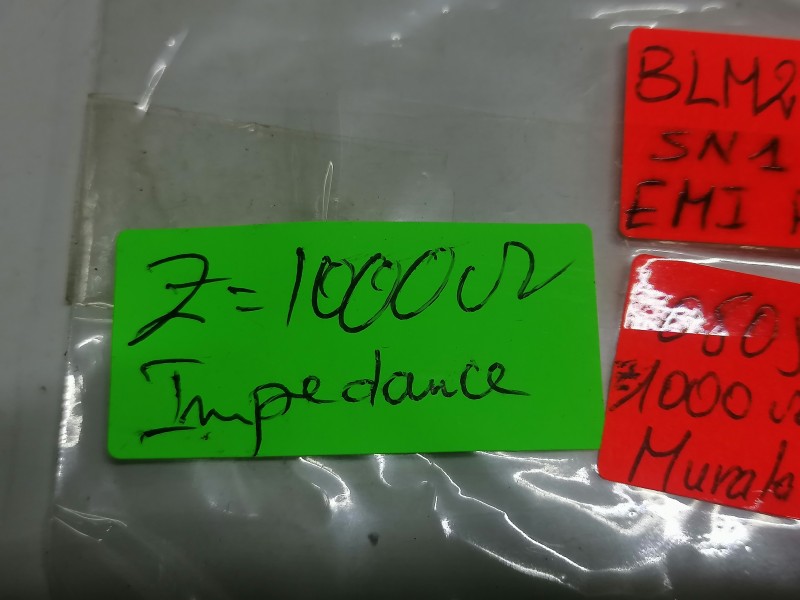 Z=1000Ω
Impedance
BLM2
SN1
EMI
0805
1000Ω
Murata